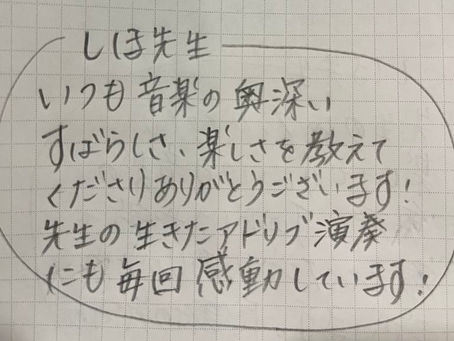 しほ先生
いつも音楽の奥深い
すばらしさ、楽しさを教えて
くださりありがとうございます!
先生の生きたアドリブ演奏
にも毎回感動しています!